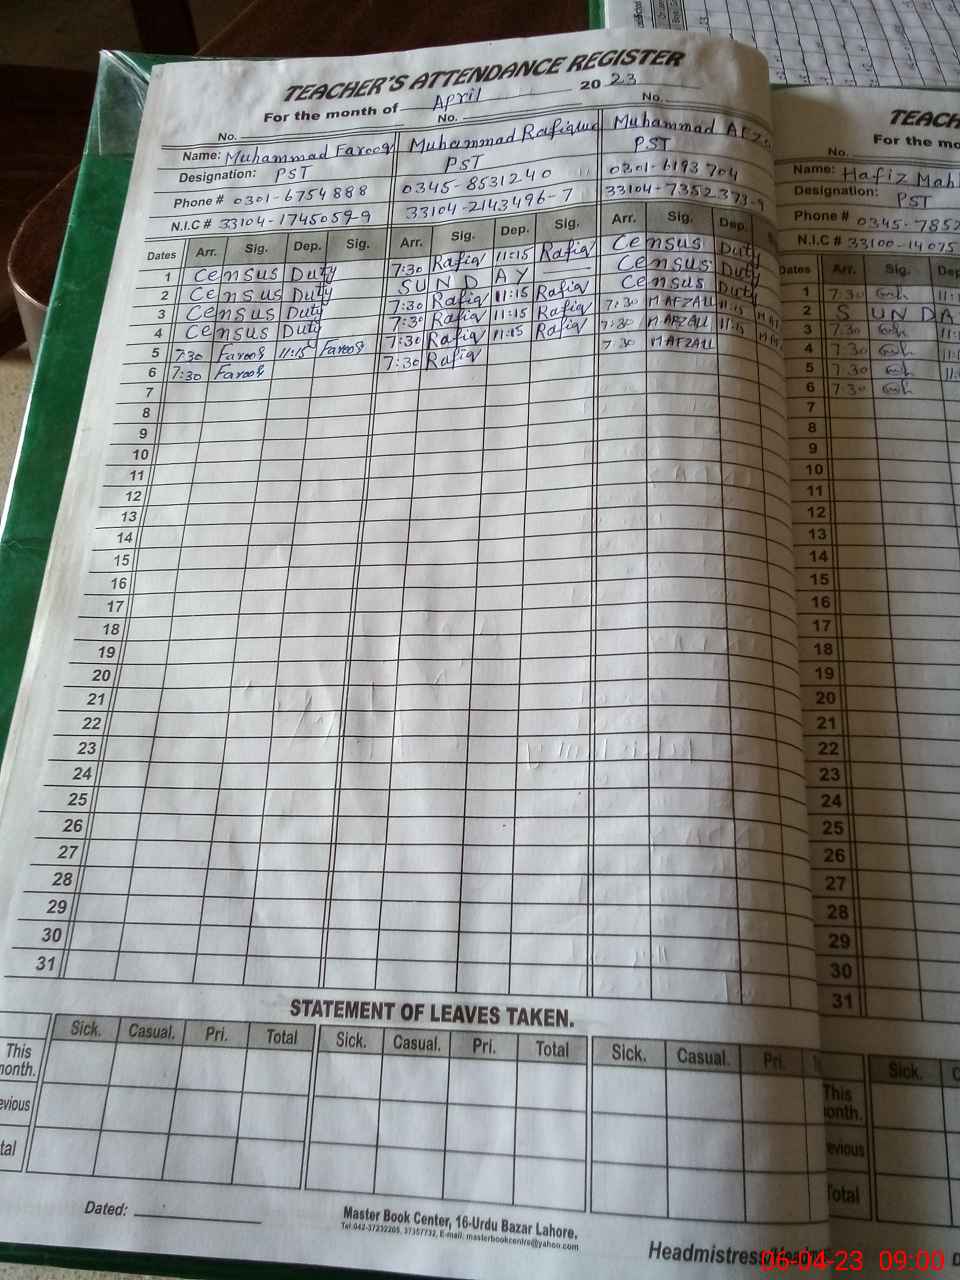 TEACHER'S ATTENDANCE REGISTER
For the month of April 2023
No. No. No.
Name: Muhammad Farooq Muhammad Muhammad
Designation: PST PST PST
Phone # 0301-6754888 0345-8531240 0301-6193704
N.I.C # 33104-1745059-9 33104-2143496-7 33104-7352373-9
Dates Arr. Sig. Dep. Sig. Arr. Sig. Dep. Sig. Arr. Sig. Dep.
1 Census Duty 7:30 Rafiq 11:15 Rafiq Census Duty
2 Census Duty SUNDAY Census Duty
3 Census Duty 7:30 Rafiq 11:15 Rafiq Census Duty
4 Census Duty 7:30 Rafiq 11:15 Rafiq 7:30 M AFZAL 11:15
5 7:30 Farooq 11:15 Farooq 7:30 Rafiq 11:15 Rafiq 7:30 M AFZAL 11:15
6 7:30 Farooq 7:30 Rafiq 7:30 M AFZAL
7
8
9
10
11
12
13
14
15
16
17
18
19
20
21
22
23
24
25
26
27
28
29
30
31
STATEMENT OF LEAVES TAKEN.
Sick. Casual. Pri. Total Sick. Casual. Pri. Total Sick. Casual. Pri.
This
month.
Dated:
Master Book Center, 16-Urdu Bazar Lahore.
Tel:042-37232205, 37357732, E-mail: masterbookcentre@yahoo.com
Headmistress
For the
No.
Name: Hafiz
Designation: PST
Phone # 0345-7852
N.I.C # 33100-14075
Dates Arr. Sig.
1 7:30
2 SUNDA
3 7:30
4 7:30
5 7:30
6 7:30
7
8
9
10
11
12
13
14
15
16
17
18
19
20
21
22
23
24
25
26
27
28
29
30
31
Sick.
This
Total
06-04-23 09:00